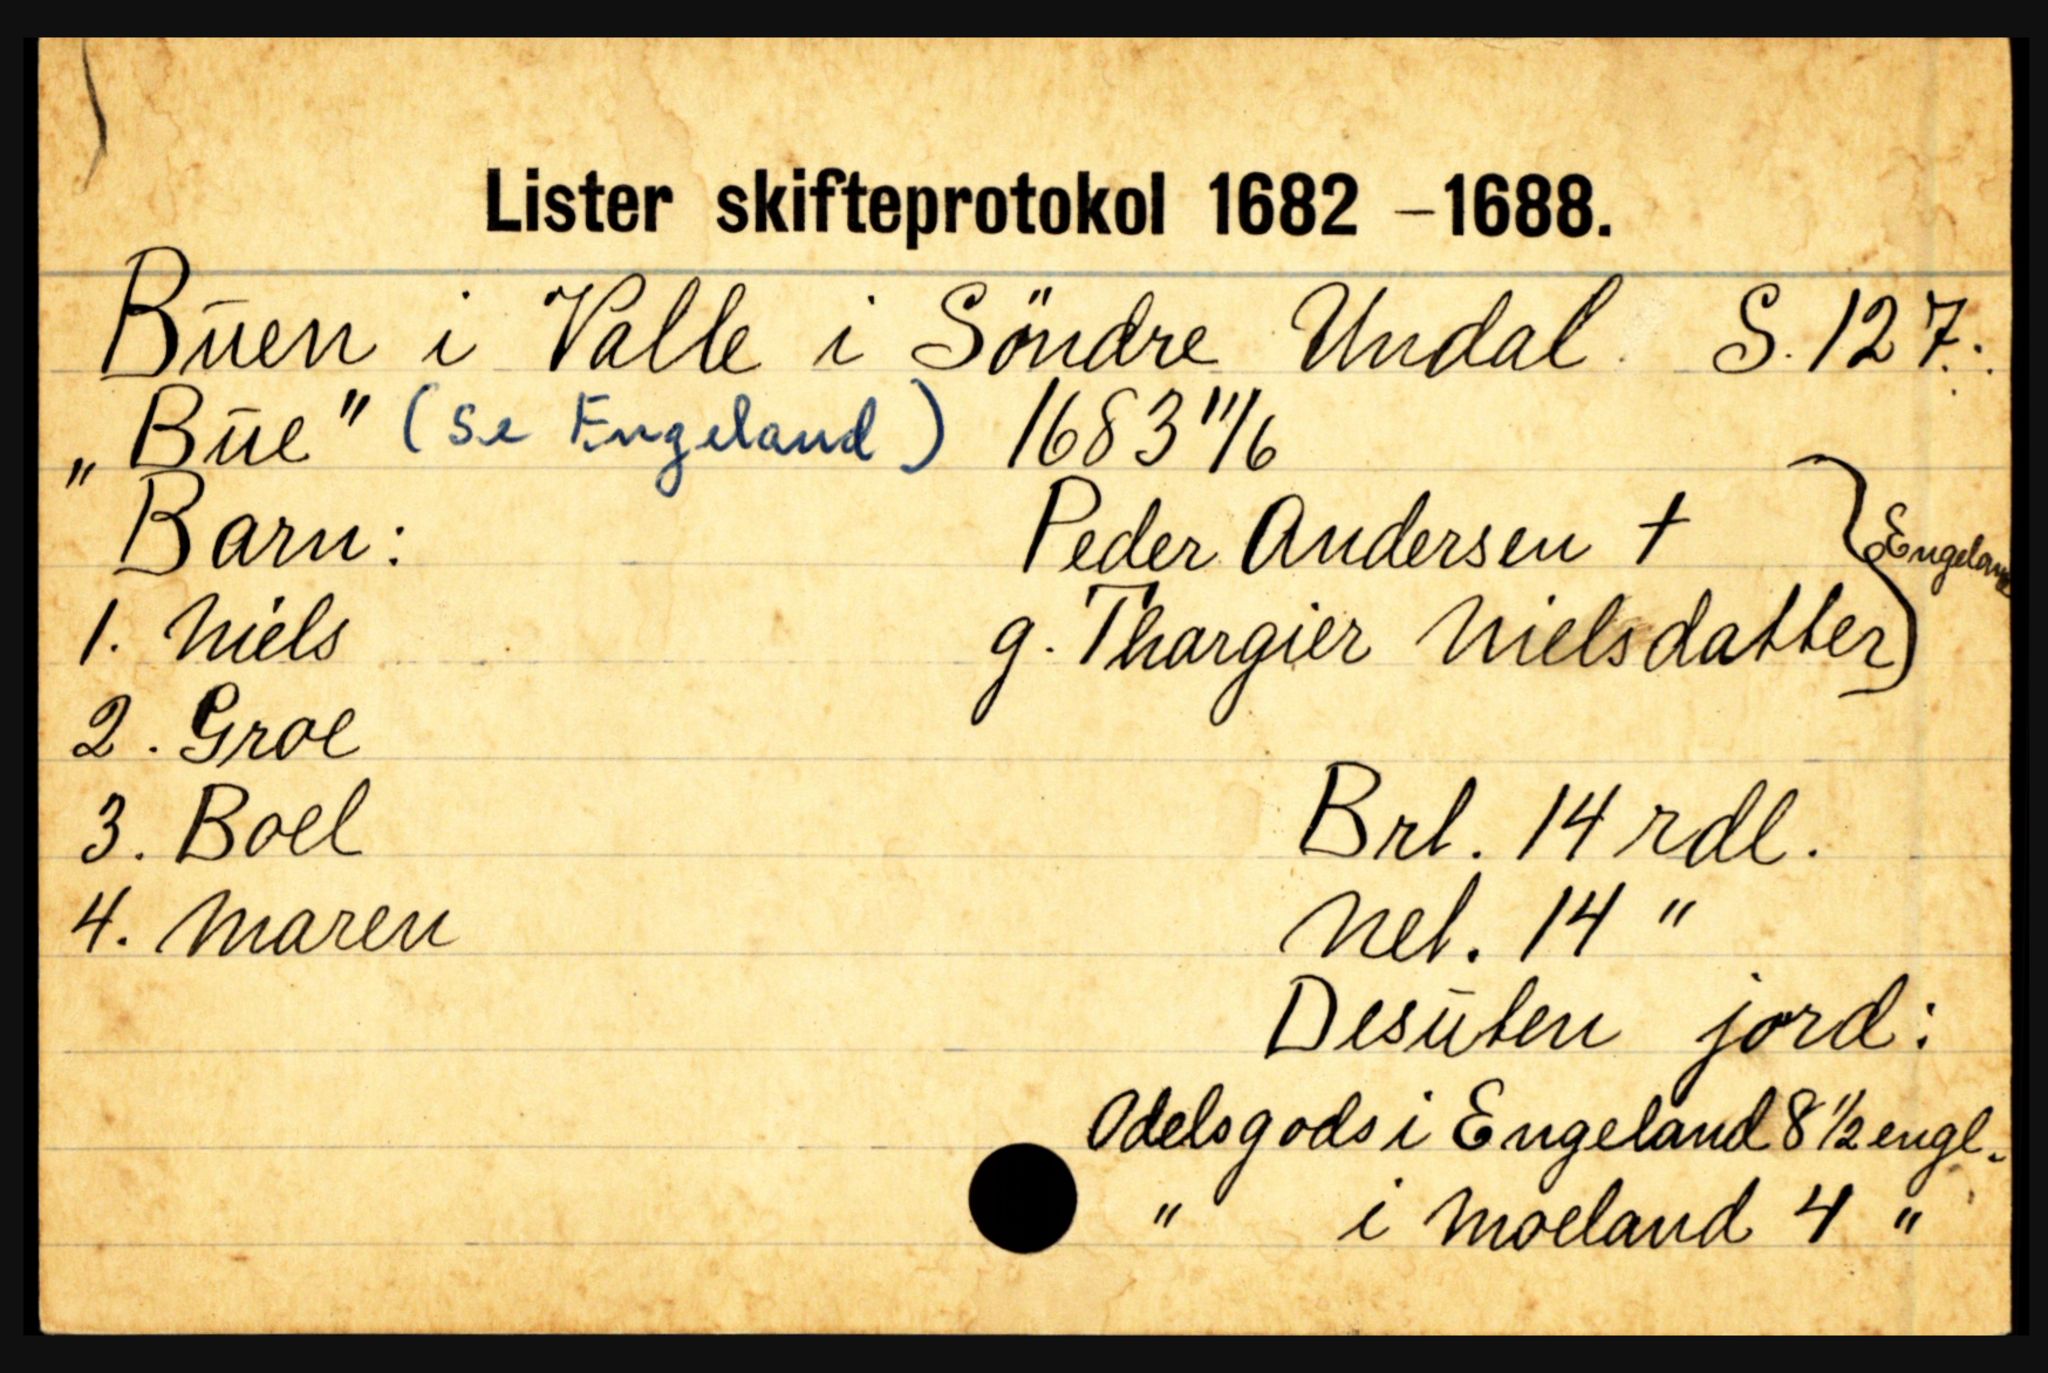 Lister skifteprotokol 1682 – 1688.
Buen i Valle i Söndre Undal. S. 127.
„Bue" (se Engeland) 1683 11/6
Barn: Peder Andersen †
g. Thargier Nielsdatter } Engeland
1. Niels
2. Groe
3. Boel
4. Maren
Brt. 14 rdl.
Net. 14 "
Desuten jord:
Odelsgods i Engeland 8 1/2 engl.
" i Moeland 4 "